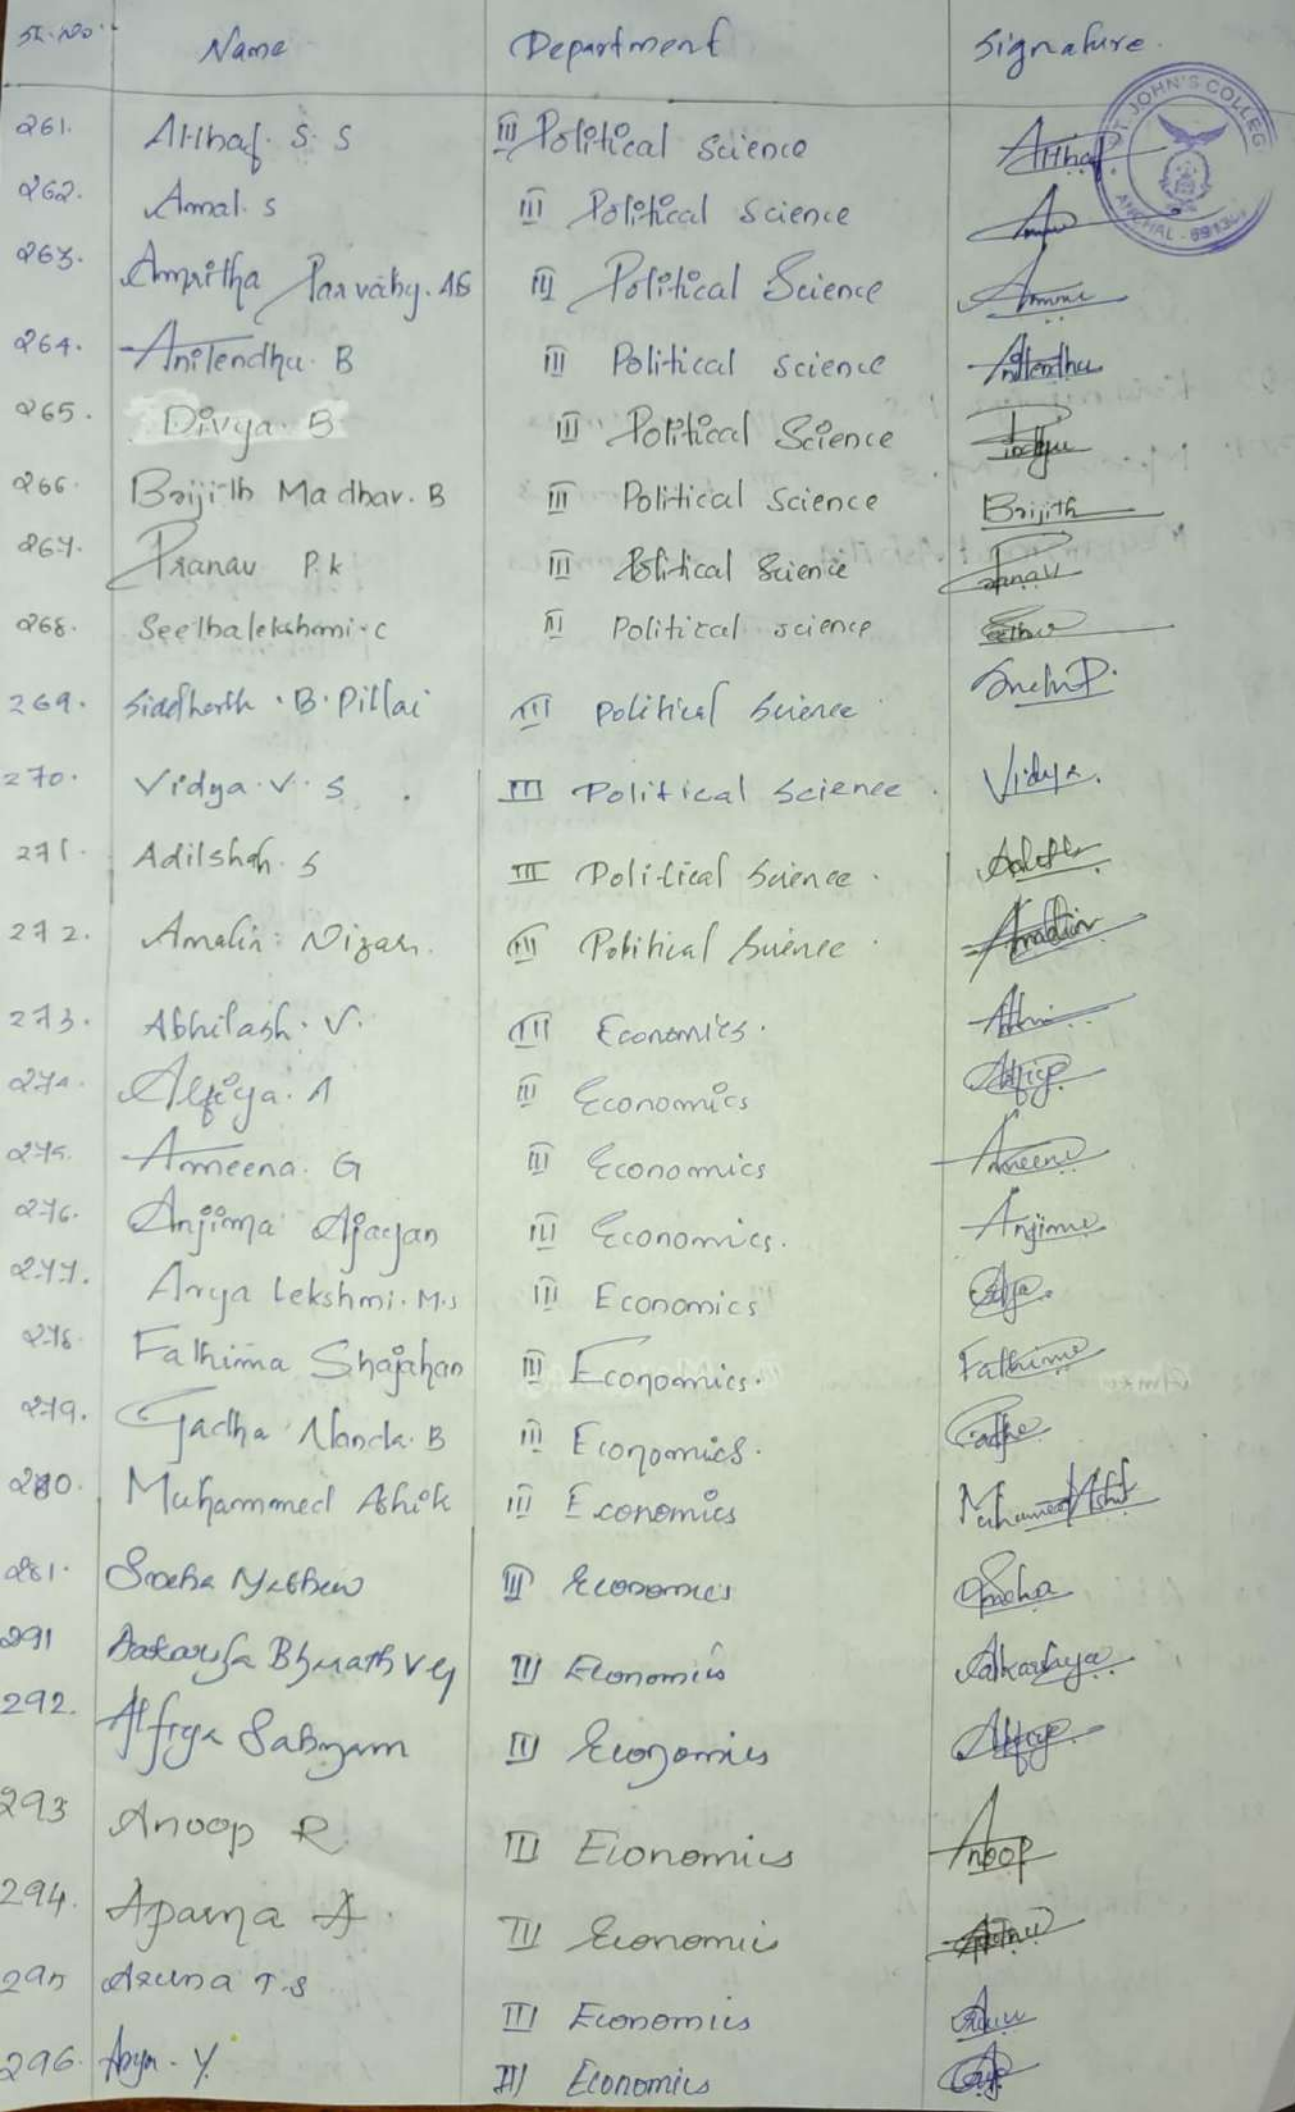 Sl. No. Name Department Signature
261. Althaf. S. S III Political Science Althaf
262. Amal. S III Political Science
263. Amritha Parvathy. AS III Political Science
264. Anitendhu. B III Political Science Anitendhu
265. Divya. B III Political Science
266. Brijith Madhav. B III Political Science Brijith
267. Pranav P.k III Political Science Pranav
268. Seethalekshmi. C III Political science
269. Siddharth. B. Pillai III Political Science
270. Vidya. V. S III Political Science Vidya.
271. Adilshah. S III Political Science.
272. Amalin Nizar. III Political Science
273. Abhilash. V. III Economics.
274. Alfiya. A III Economics Alfiya
275. Ameena. G III Economics Ameena
276. Anjima Ajayan III Economics. Anjima
277. Arya Lekshmi. M.S III Economics
278. Fathima Shajahan III Economics. Fathima
279. Gadha Nanda. B III Economics. Gadha
280. Muhammed Ashik III Economics
281. Sneha Mathew III Economics Sneha
291 Bharath III Economics
292. Alfiya Sabnam III Economics Alfiya
293 Anoop R III Economics Anoop
294. Aparna A. III Economics
295 Aruna T.S III Economics
296. Arya. Y III Economics
ST. JOHN'S COLLEGE
ANCHAL